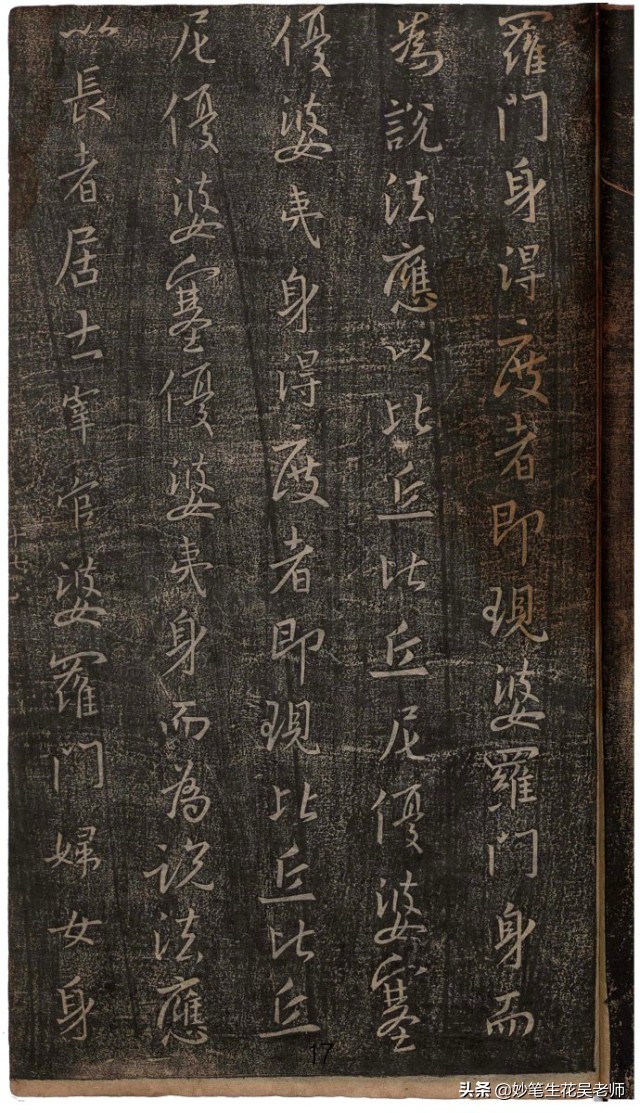 羅門身得度者即現婆羅門身而
為說法應以比丘比丘尼優婆塞
優婆夷身得度者即現比丘比丘
尼優婆塞優婆夷身而為說法應
以長者居士宰官婆羅門婦女身
17
头条 @妙笔生花吴老师